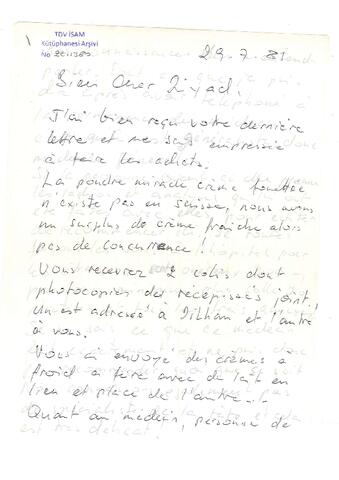 TDV İSAM
Kütüphanesi Arşivi
No
29.7.81
Bien Cher Ziyad!
J'ai bien reçu votre dernière
lettre et me suis empressée
à faire les achats.
La poudre miracle crème fouettée
n'existe pas en Suisse, nous avons
un surplus de crème fraîche alors
pas de concurrence!
Vous recevrez 2 colis dont
photocopies des récépissés joint,
un est adressé à Dilham et l'autre
à vous.
Vous ai envoyé des crèmes à
froid à faire avec du lait en
lieu et place de l'autre..
Quant au médecin, personne de